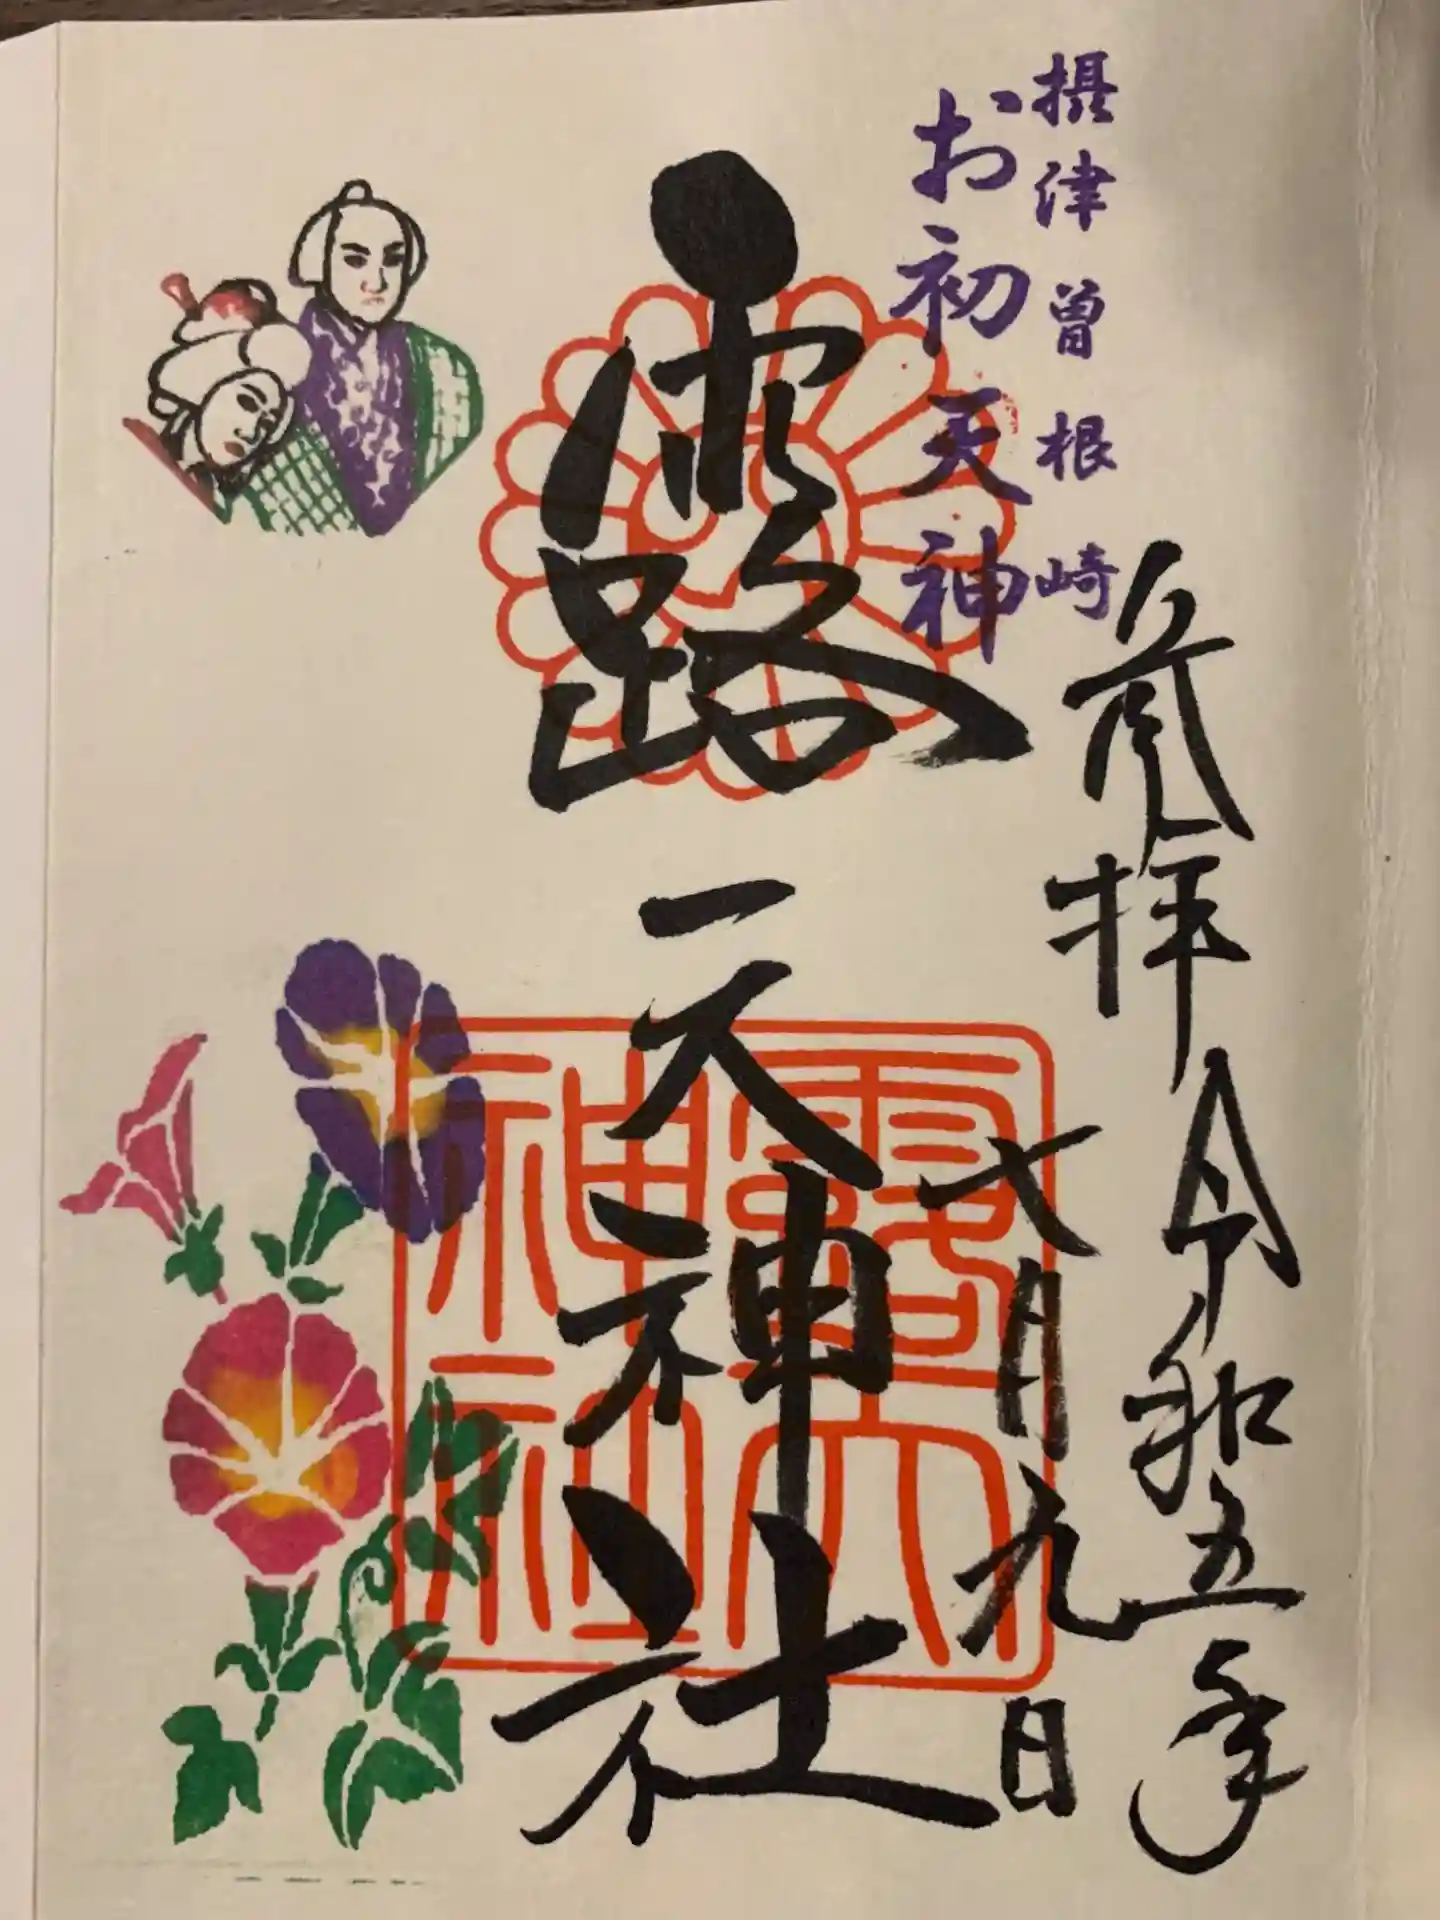 摂津曽根崎
お初天神
参拝 令和五年
七月九日
露天神社
露天
神社